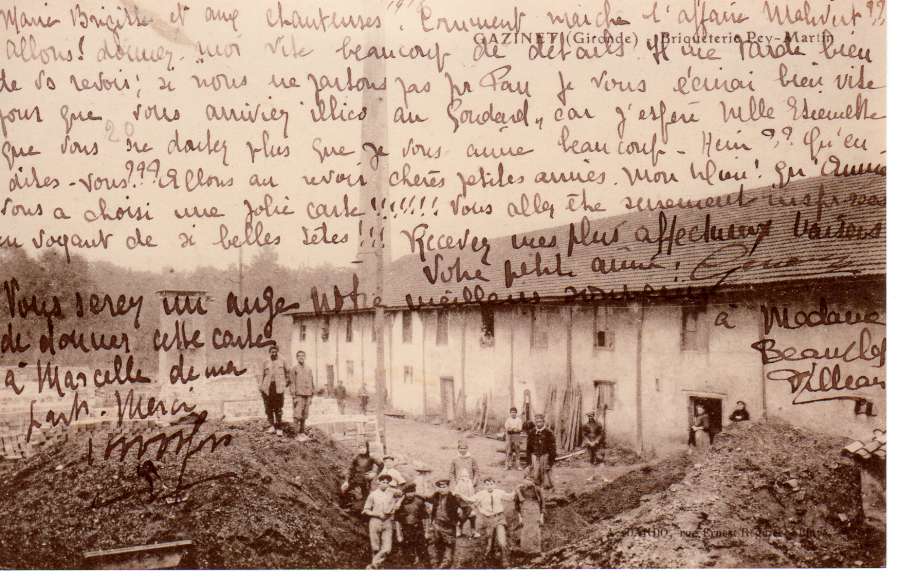 Marie Brigitte et aux chanteuses ! Comment marche l'affaire Malivert ??
GAZINET (Gironde) - Briqueterie Pey-Martin
Allons ! donnez-moi vite beaucoup de détails. Il me tarde bien
de vs revoir ; si nous ne partons pas pr Pau je vous écrirai bien vite
pour que vous arriviez illico au Goudard, car j'espère Mlle
que vous ne doutez plus que je vous aime beaucoup - Hein ?? Qu'en
dites-vous ??? Allons au revoir chères petites amies. Mon Dieu ! qu'Annie
vous a choisi une jolie carte !!!!!!! Vous allez être
en voyant de si belles têtes !!! Recevez mes plus affectueux baisers
Votre petite amie,
Vous serez un ange
de donner cette carte
à Marcelle de ma
part. Merci
Notre meilleur souvenir
à Madame
rue Ernest